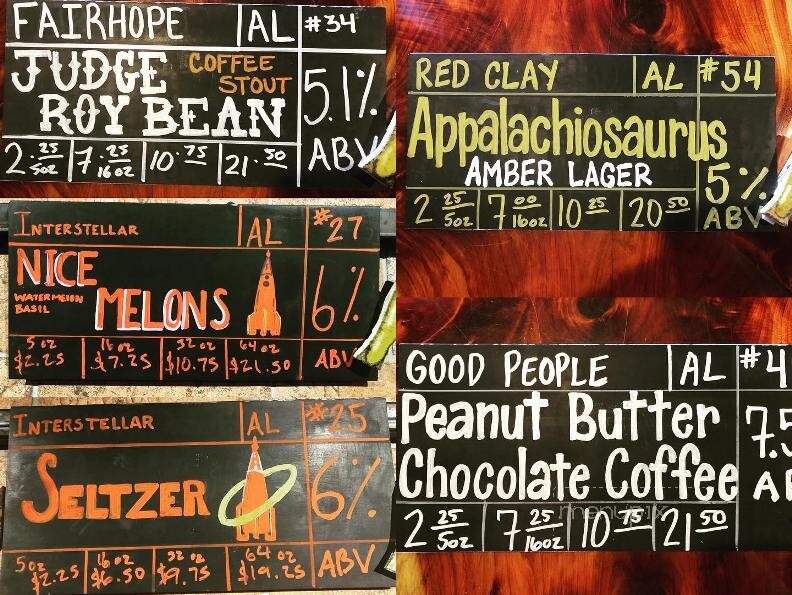 FAIRHOPE AL #34
JUDGE COFFEE
STOUT
ROY BEAN 5.1%
ABV
2.25 5oz 7.25 16oz 10.75 21.50
INTERSTELLAR AL #27
NICE
WATERMELON
BASIL
MELONS 6%
ABV
5 oz 16 oz 32 oz 64 oz
$2.25 $7.25 $10.75 $21.50
INTERSTELLAR AL #25
SELTZER 6%
ABV
5 oz 16 oz 32 oz 64 oz
$2.25 $6.50 $9.75 $19.25
RED CLAY AL #54
Appalachiosaurus
AMBER LAGER
5%
ABV
2 25 5oz 7 00 16oz 10 25 20 50
GOOD PEOPLE AL #4
Peanut Butter
Chocolate Coffee
7.5
AB
2 25 5oz 7 25 16oz 10 75 21 50
menupix